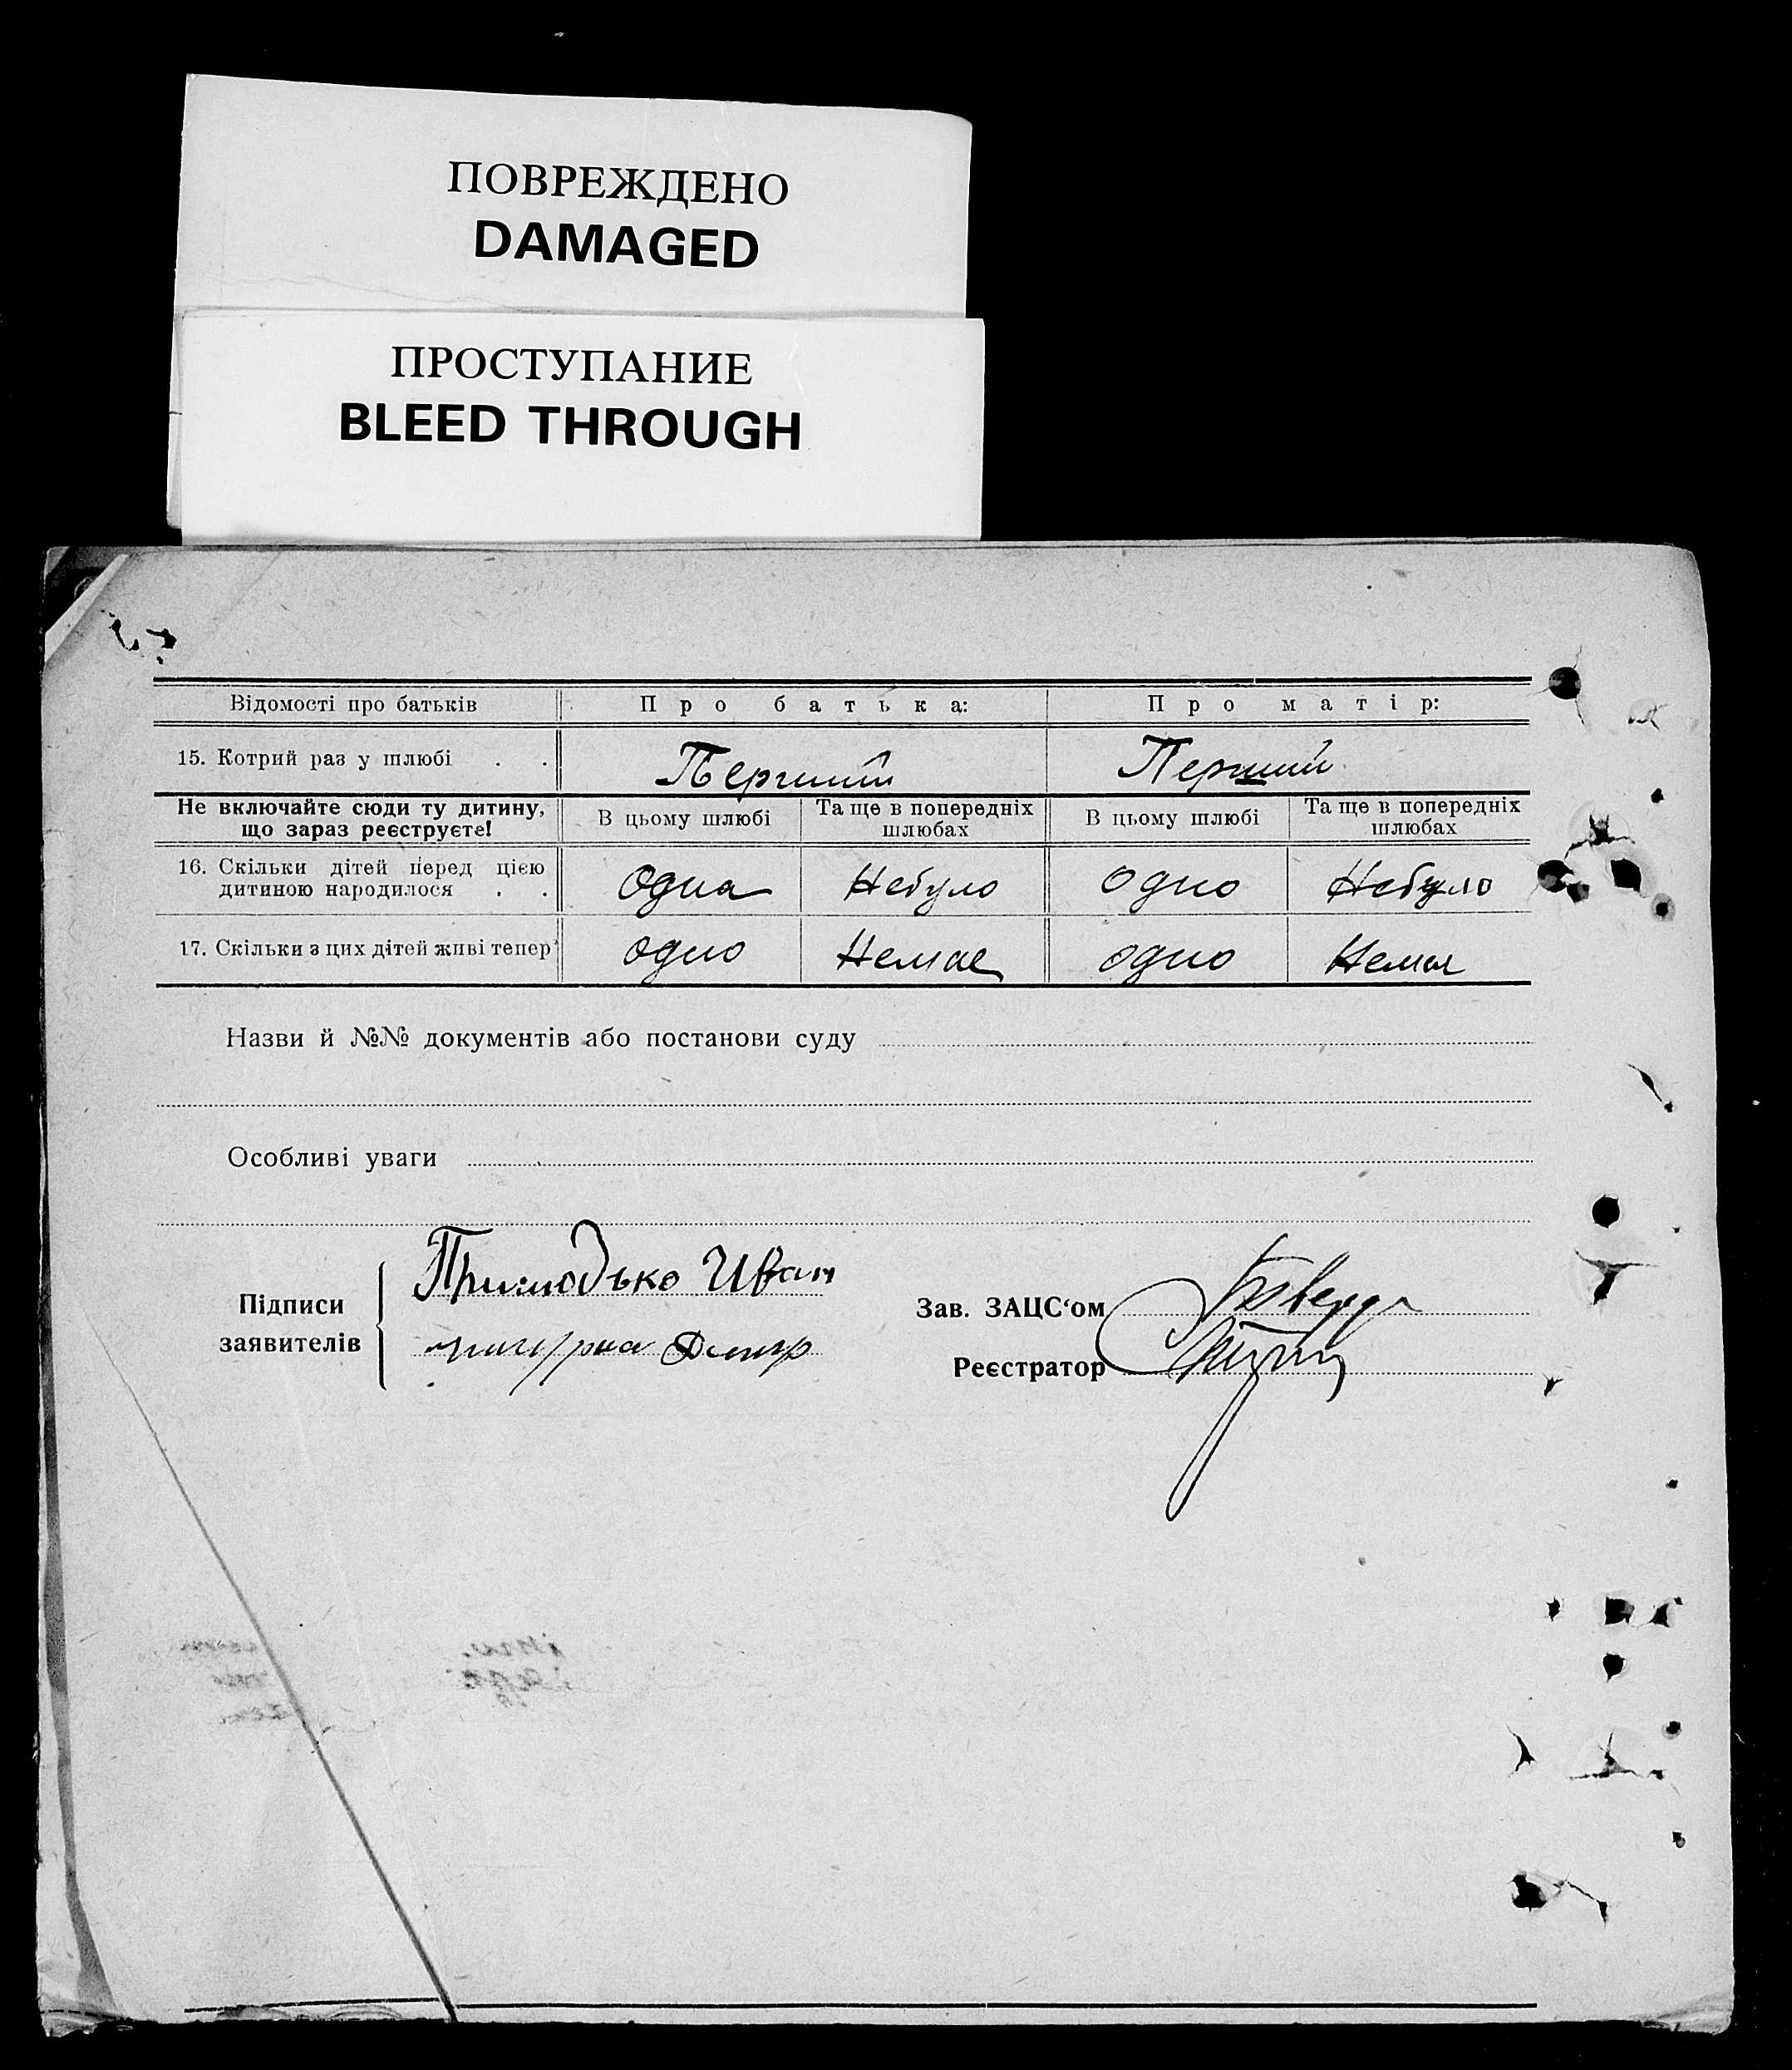 ПОВРЕЖДЕНО
DAMAGED
ПРОСТУПАНИЕ
BLEED THROUGH
Відомості про батьків Про батька: Про матір:
15. Котрий раз у шлюбі . . Перший Перший
Не включайте сюди ту дитину, що зараз реєструєте! В цьому шлюбі Та ще в попередніх шлюбах В цьому шлюбі Та ще в попередніх шлюбах
16. Скільки дітей перед цією
дитиною народилося . . Одна Небуло Одно Небуло
17. Скільки з цих дітей живі тепер Одно Немає Одно Немає
Назви й №№ документів або постанови суду
Особливі уваги
Підписи
заявителів
Иван
Зав. ЗАЦС‘ом
Реєстратор